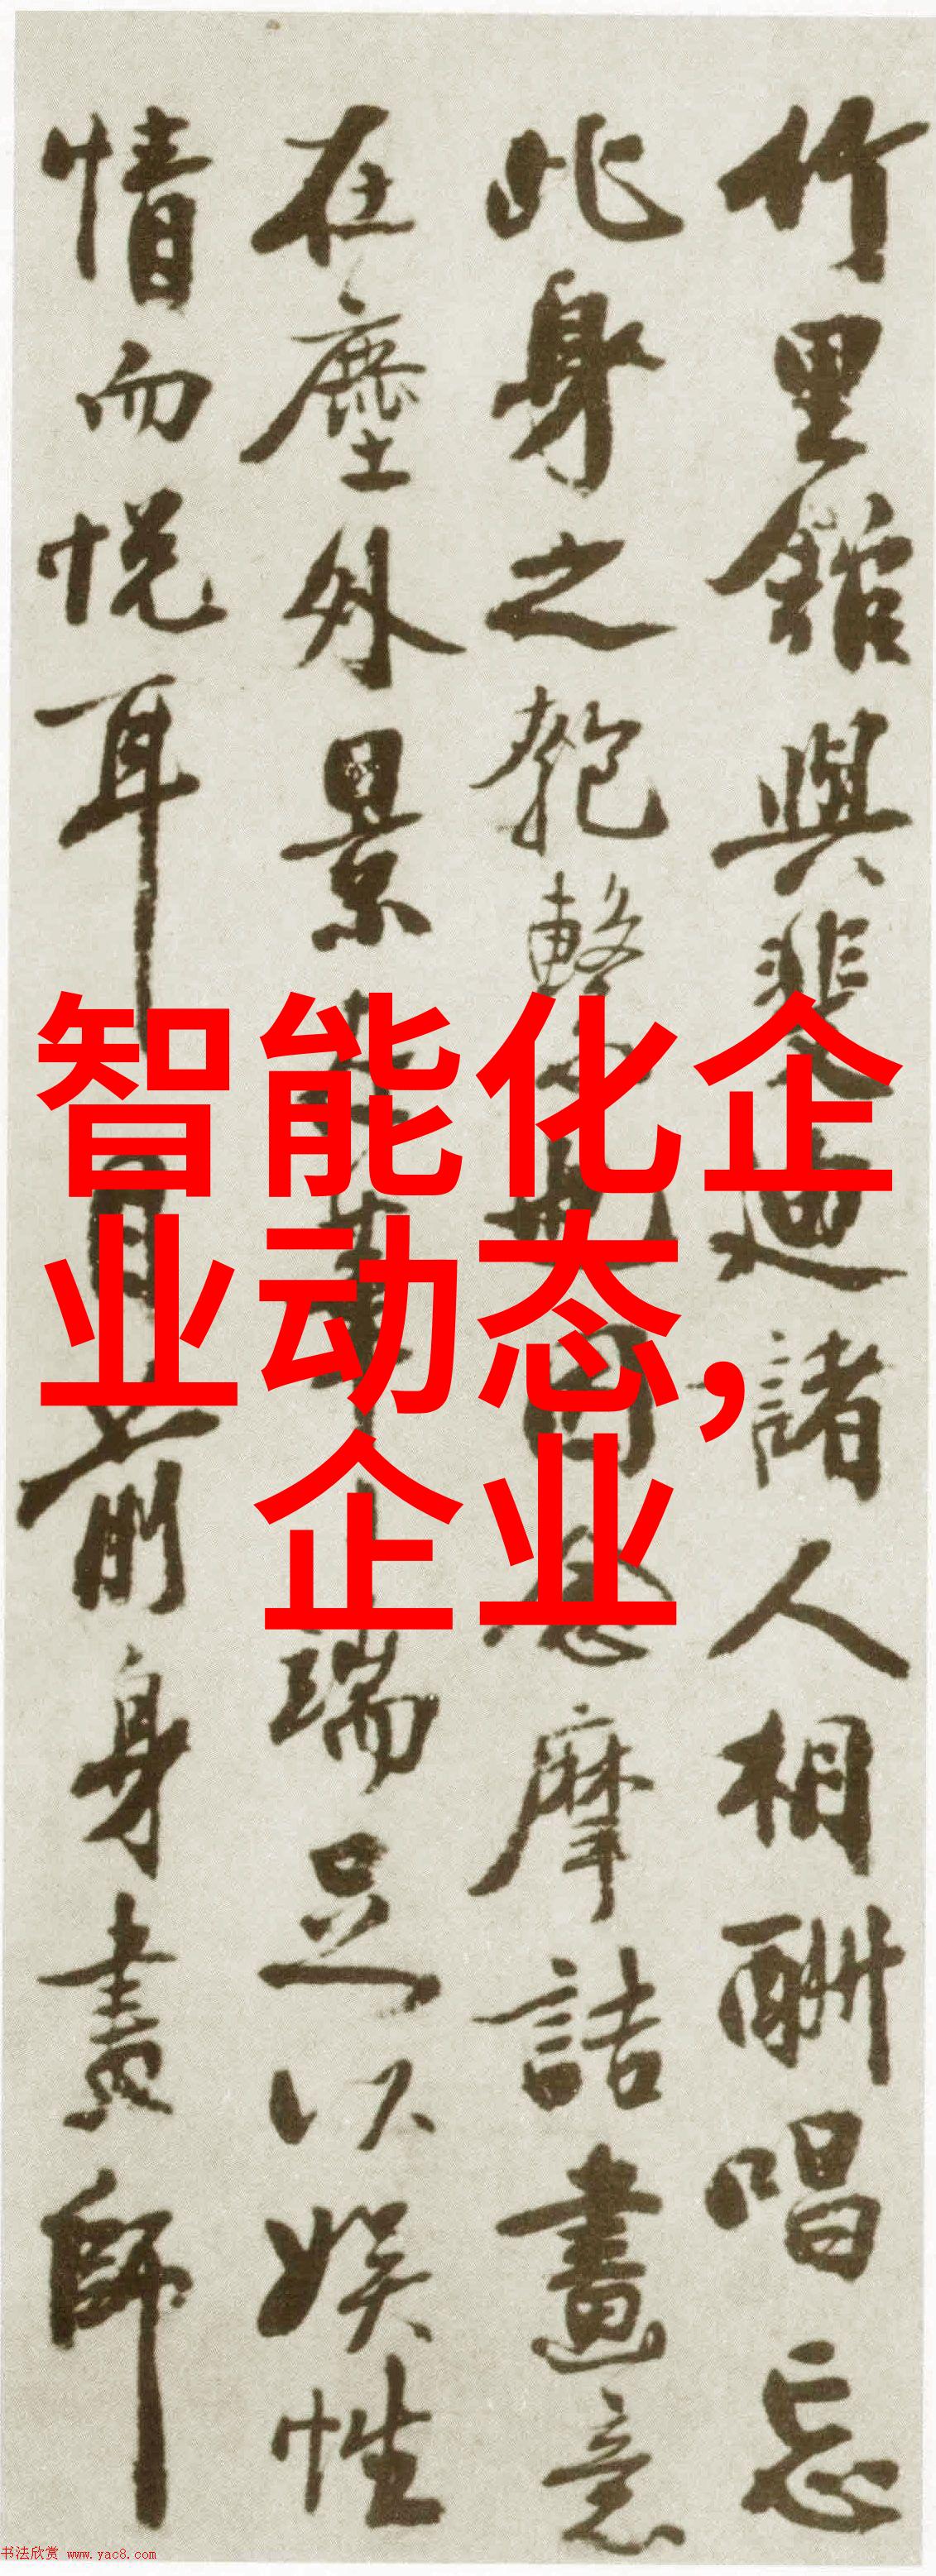 竹里館與裴迪諸人相酬唱忘
此身之匏繫也因念摩詰畫意
在塵外景
端足以娛性
情而悅耳目前身畫師
智能化企
业动态,
企业
书法欣赏 www.yac8.com